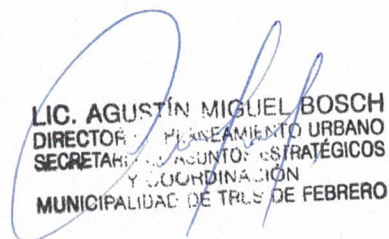 LIC. AGUSTÍN MIGUEL BOSCH
DIRECTOR PLANEAMIENTO URBANO
SECRETARI ASUNTOS ESTRATÉGICOS
Y COORDINACIÓN
MUNICIPALIDAD DE TRES DE FEBRERO